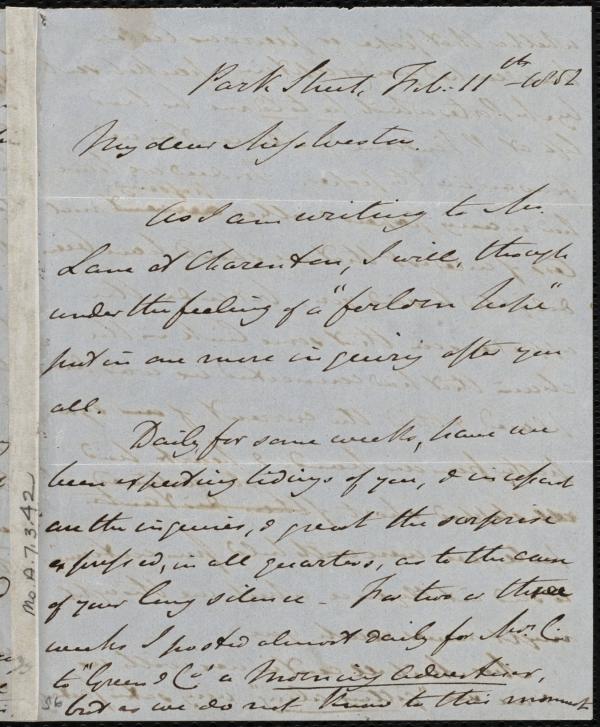 Park Street, Feb. 11th 1852
My dear Miss Weston.
As I am writing to Mr.
Lane at Charenton, I will, though
under the feeling of a "forlorn hope"
put in one more inquiry after you
all.
Daily, for some weeks, have we
been expecting tidings of you, & incessant
are the inquiries, & great the surprise
expressed, in all quarters, as to the cause
of your long silence - For two or three
weeks I posted almost daily for Mrs. C.
to "Green & Co" a Morning Advertiser,
but as we do not know to this moment
Ms.A.7.3.42
56